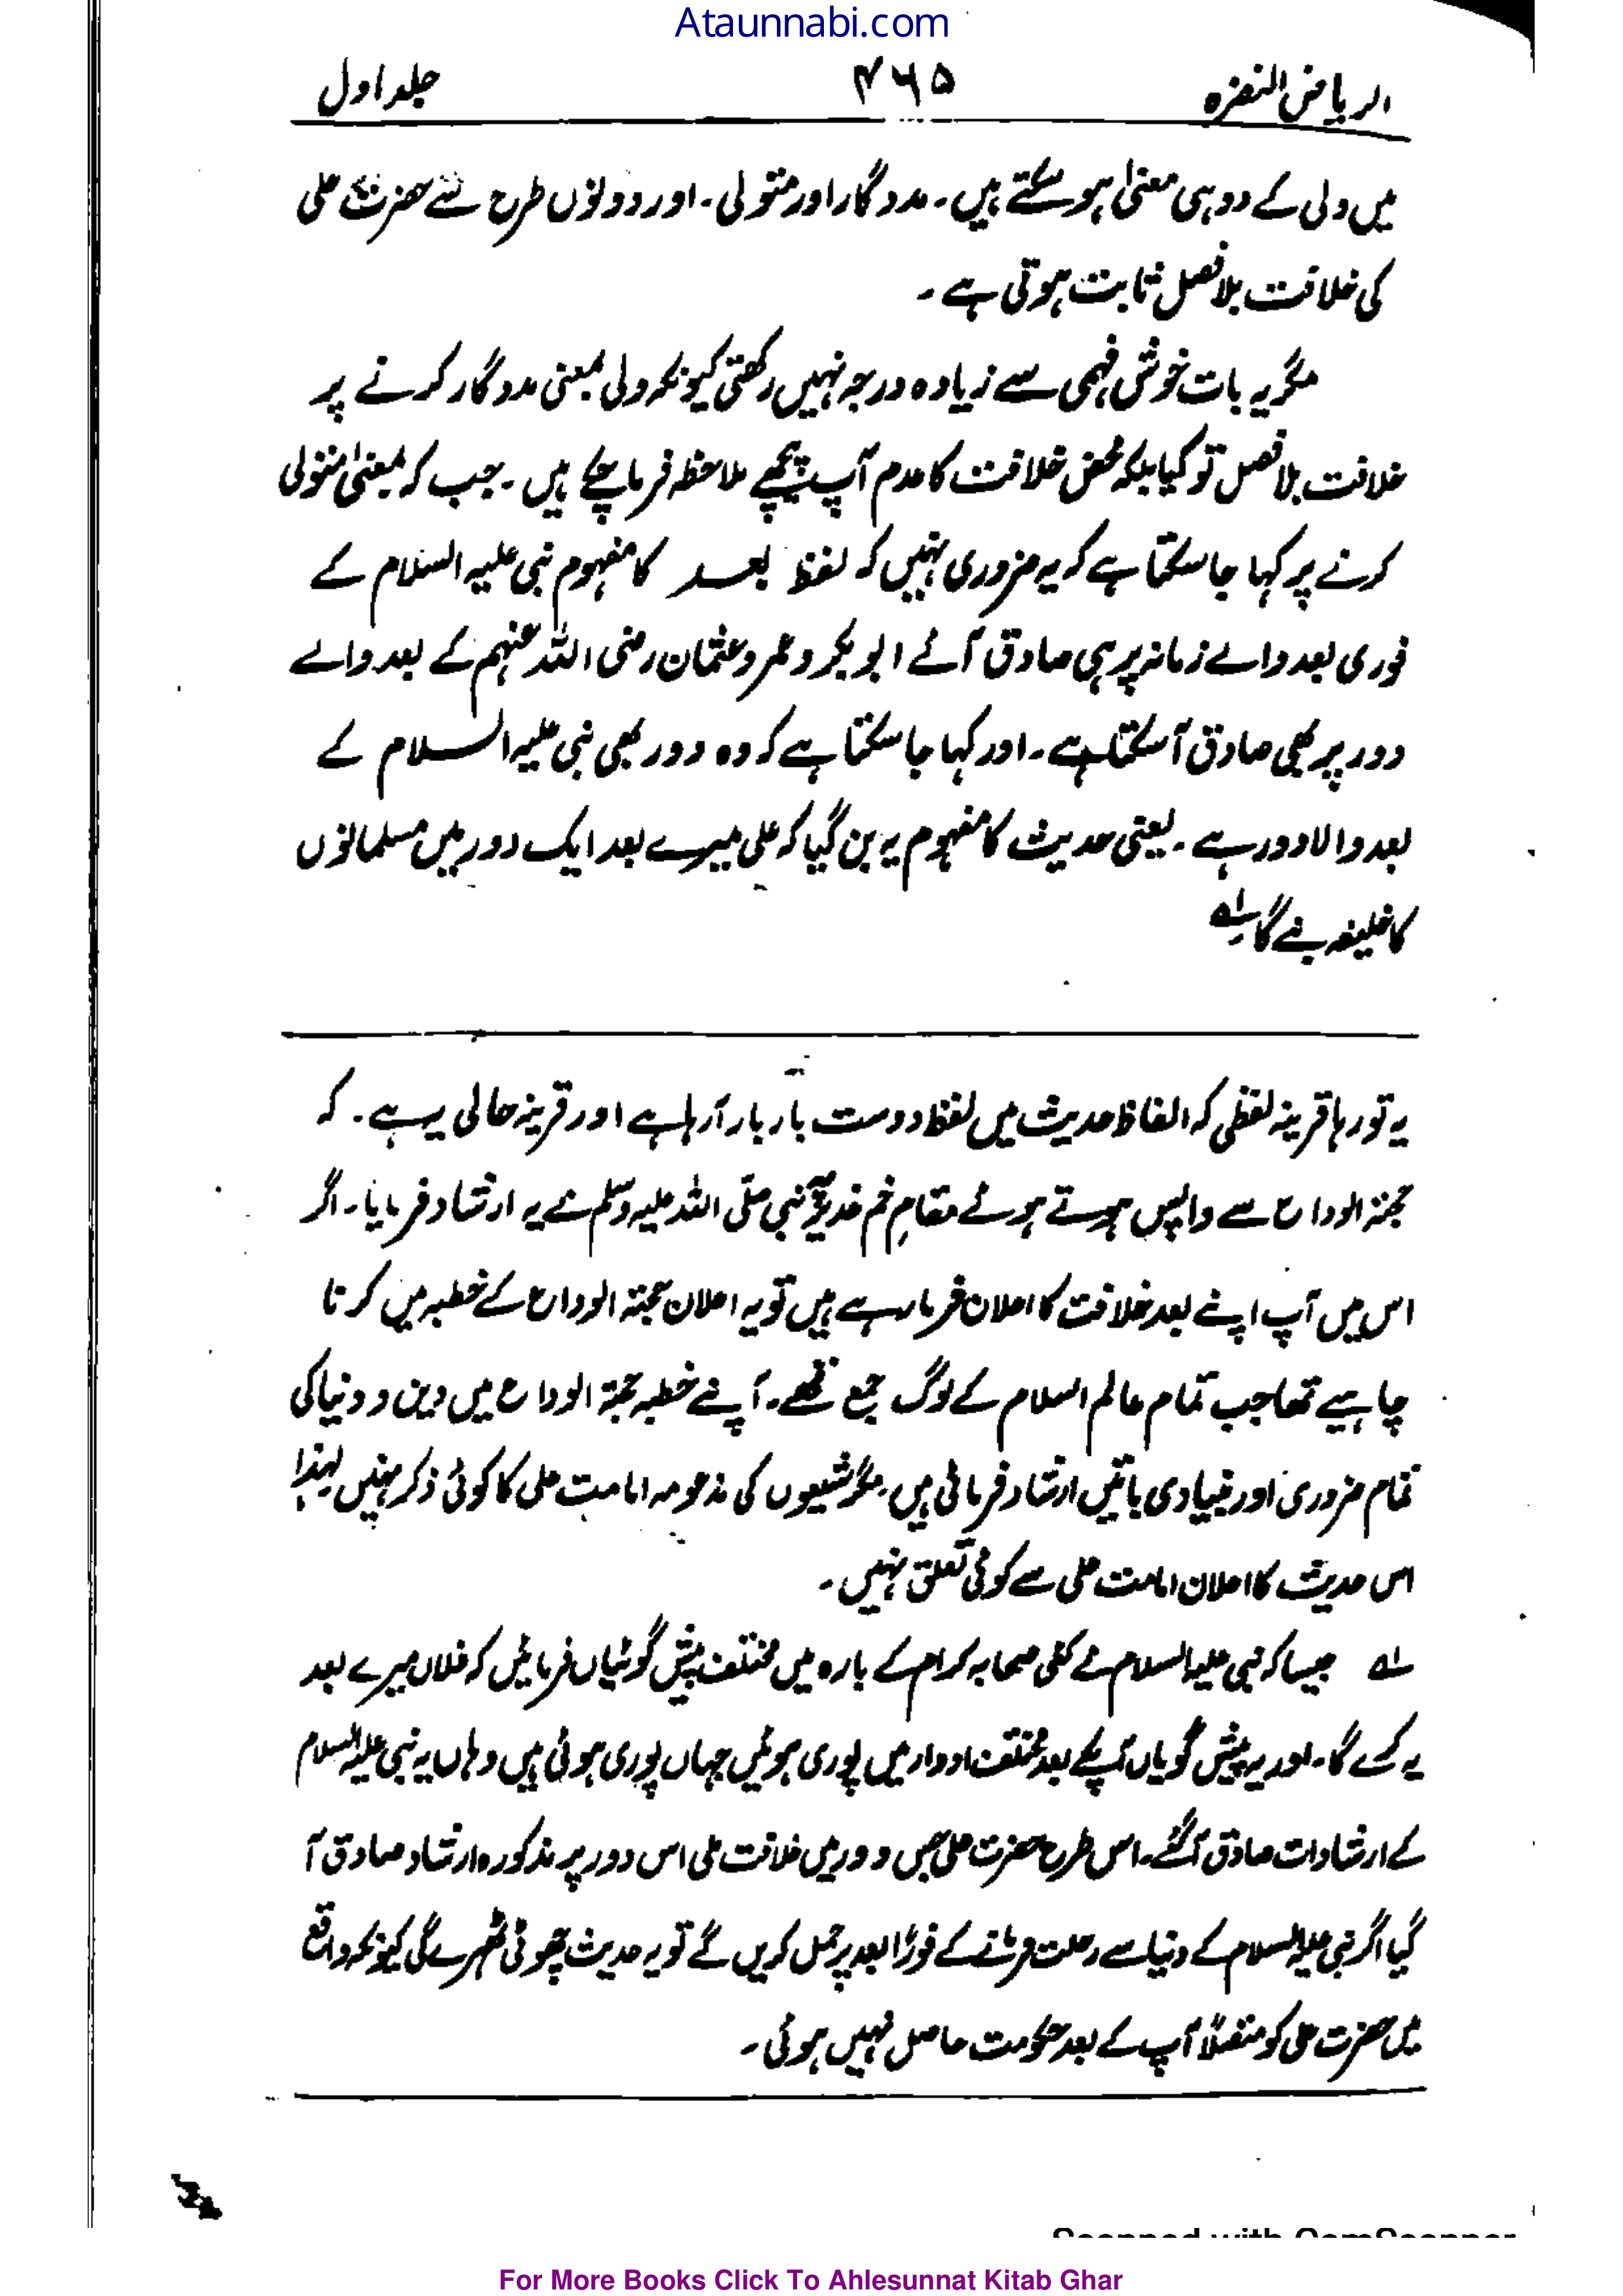 Ataunnabi.com
الریاض النضرہ ۴۶۵ جلد اول
میں ولی کے دو ہی معنیٰ ہو سکتے ہیں۔ مددگار اور متولی۔ اور دونوں طرح سے حضرت علی
کی خلافت بلا فصل ثابت ہوتی ہے۔
مگر یہ بات خوش فہمی سے زیادہ درجہ نہیں رکھتی کیونکہ ولی بمعنی مددگار کرنے پر
خلافت بلا فصل تو کیا بلکہ محض خلافت کا عدم آپ پیچھے ملاحظہ فرما چکے ہیں۔ جب کہ بمعنیٰ متولی
کرنے پر کہا جا سکتا ہے کہ یہ ضروری نہیں کہ لفظ بعد کا مفہوم نبی علیہ السلام کے
فوری بعد والے زمانہ پر ہی صادق آئے ابو بکر و عمر و عثمان رضی اللہ عنہم کے بعد والے
دور پر بھی صادق آ سکتا ہے۔ اور کہا جا سکتا ہے کہ وہ دور بھی نبی علیہ السلام کے
بعد والا دور ہے۔ یعنی حدیث کا مفہوم یہ بن گیا کہ علی میرے بعد ایک دور میں مسلمانوں
کا خلیفہ بنے گا ؎۱
یہ تو رہا قرینہ لفظی کہ الفاظ حدیث میں لفظ دوست بار بار آ رہا ہے اور قرینہ حالی یہ ہے۔ کہ
حجۃ الوداع سے واپس ہوتے ہوئے مقامِ خم غدیر پر نبی صلی اللہ علیہ وسلم نے یہ ارشاد فرمایا۔ اگر
اس میں آپ اپنے بعد خلافت کا اعلان فرما رہے ہیں تو یہ اعلان حجۃ الوداع کے خطبہ میں کرنا
چاہیے تھا جب تمام عالم اسلام کے لوگ جمع تھے۔ آپ نے خطبہ حجۃ الوداع میں دین و دنیا کی
تمام ضروری اور بنیادی باتیں ارشاد فرمائی ہیں۔ مگر شیعوں کی مذعومہ امامت علی کا کوئی ذکر نہیں لہٰذا
اس حدیث کا اعلان امامت علی سے کوئی تعلق نہیں۔
؎۱ جیسا کہ نبی علیہ السلام نے کئی صحابہ کرام کے بارہ میں مختلف پیش گوئیاں فرمائیں کہ فلاں میرے بعد
یہ کرے گا۔ اور یہ پیش گویاں آپکے بعد مختلف ادوار میں پوری ہوئیں جہاں پوری ہوئی ہیں وہاں یہ نبی علیہ السلام
کے ارشادات صادق آ گئے۔ اس طرح حضرت علی جس دور میں خلافت ملی اس دور پر مذکورہ ارشاد صادق آ
گیا اگر نبی علیہ السلام کے دنیا سے رحلت فرمانے کے فوراً بعد پر حمل کریں گے تو یہ حدیث جھوٹی ٹھہرے گی کیونکہ واقع
میں حضرت علی کو متصلاً آپ کے بعد حکومت حاصل نہیں ہوئی۔
Scanned with CamScanner
For More Books Click To Ahlesunnat Kitab Ghar